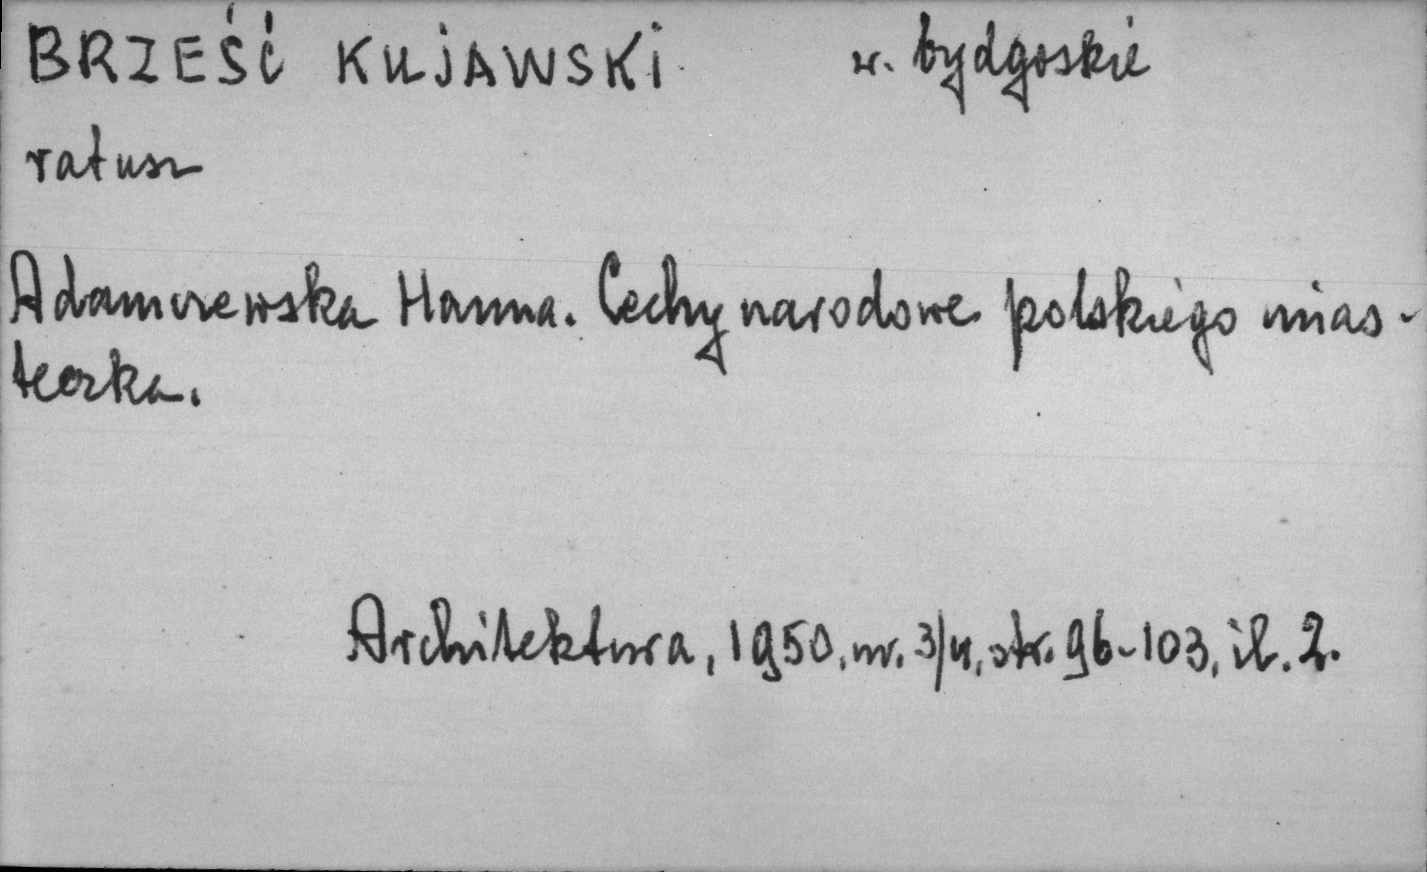 BRZEŚĆ KUJAWSKI w. bydgoskie
ratusz
Adamczewska Hanna. Cechy narodowe polskiego mias-
teczka.
Architektura, 1950, nr. 3/4, str. 96-103, il. 2.